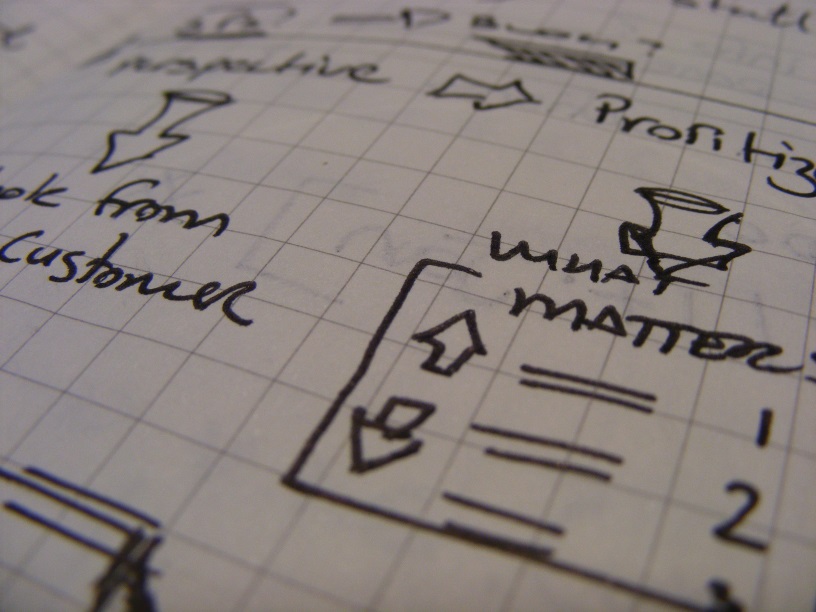 Perspective
Profitiz
ok from
customer
WHAT
MATTERS
1
2